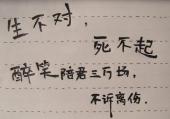 生不对，
死不起
醉笑陪君三万场，
不诉离伤．